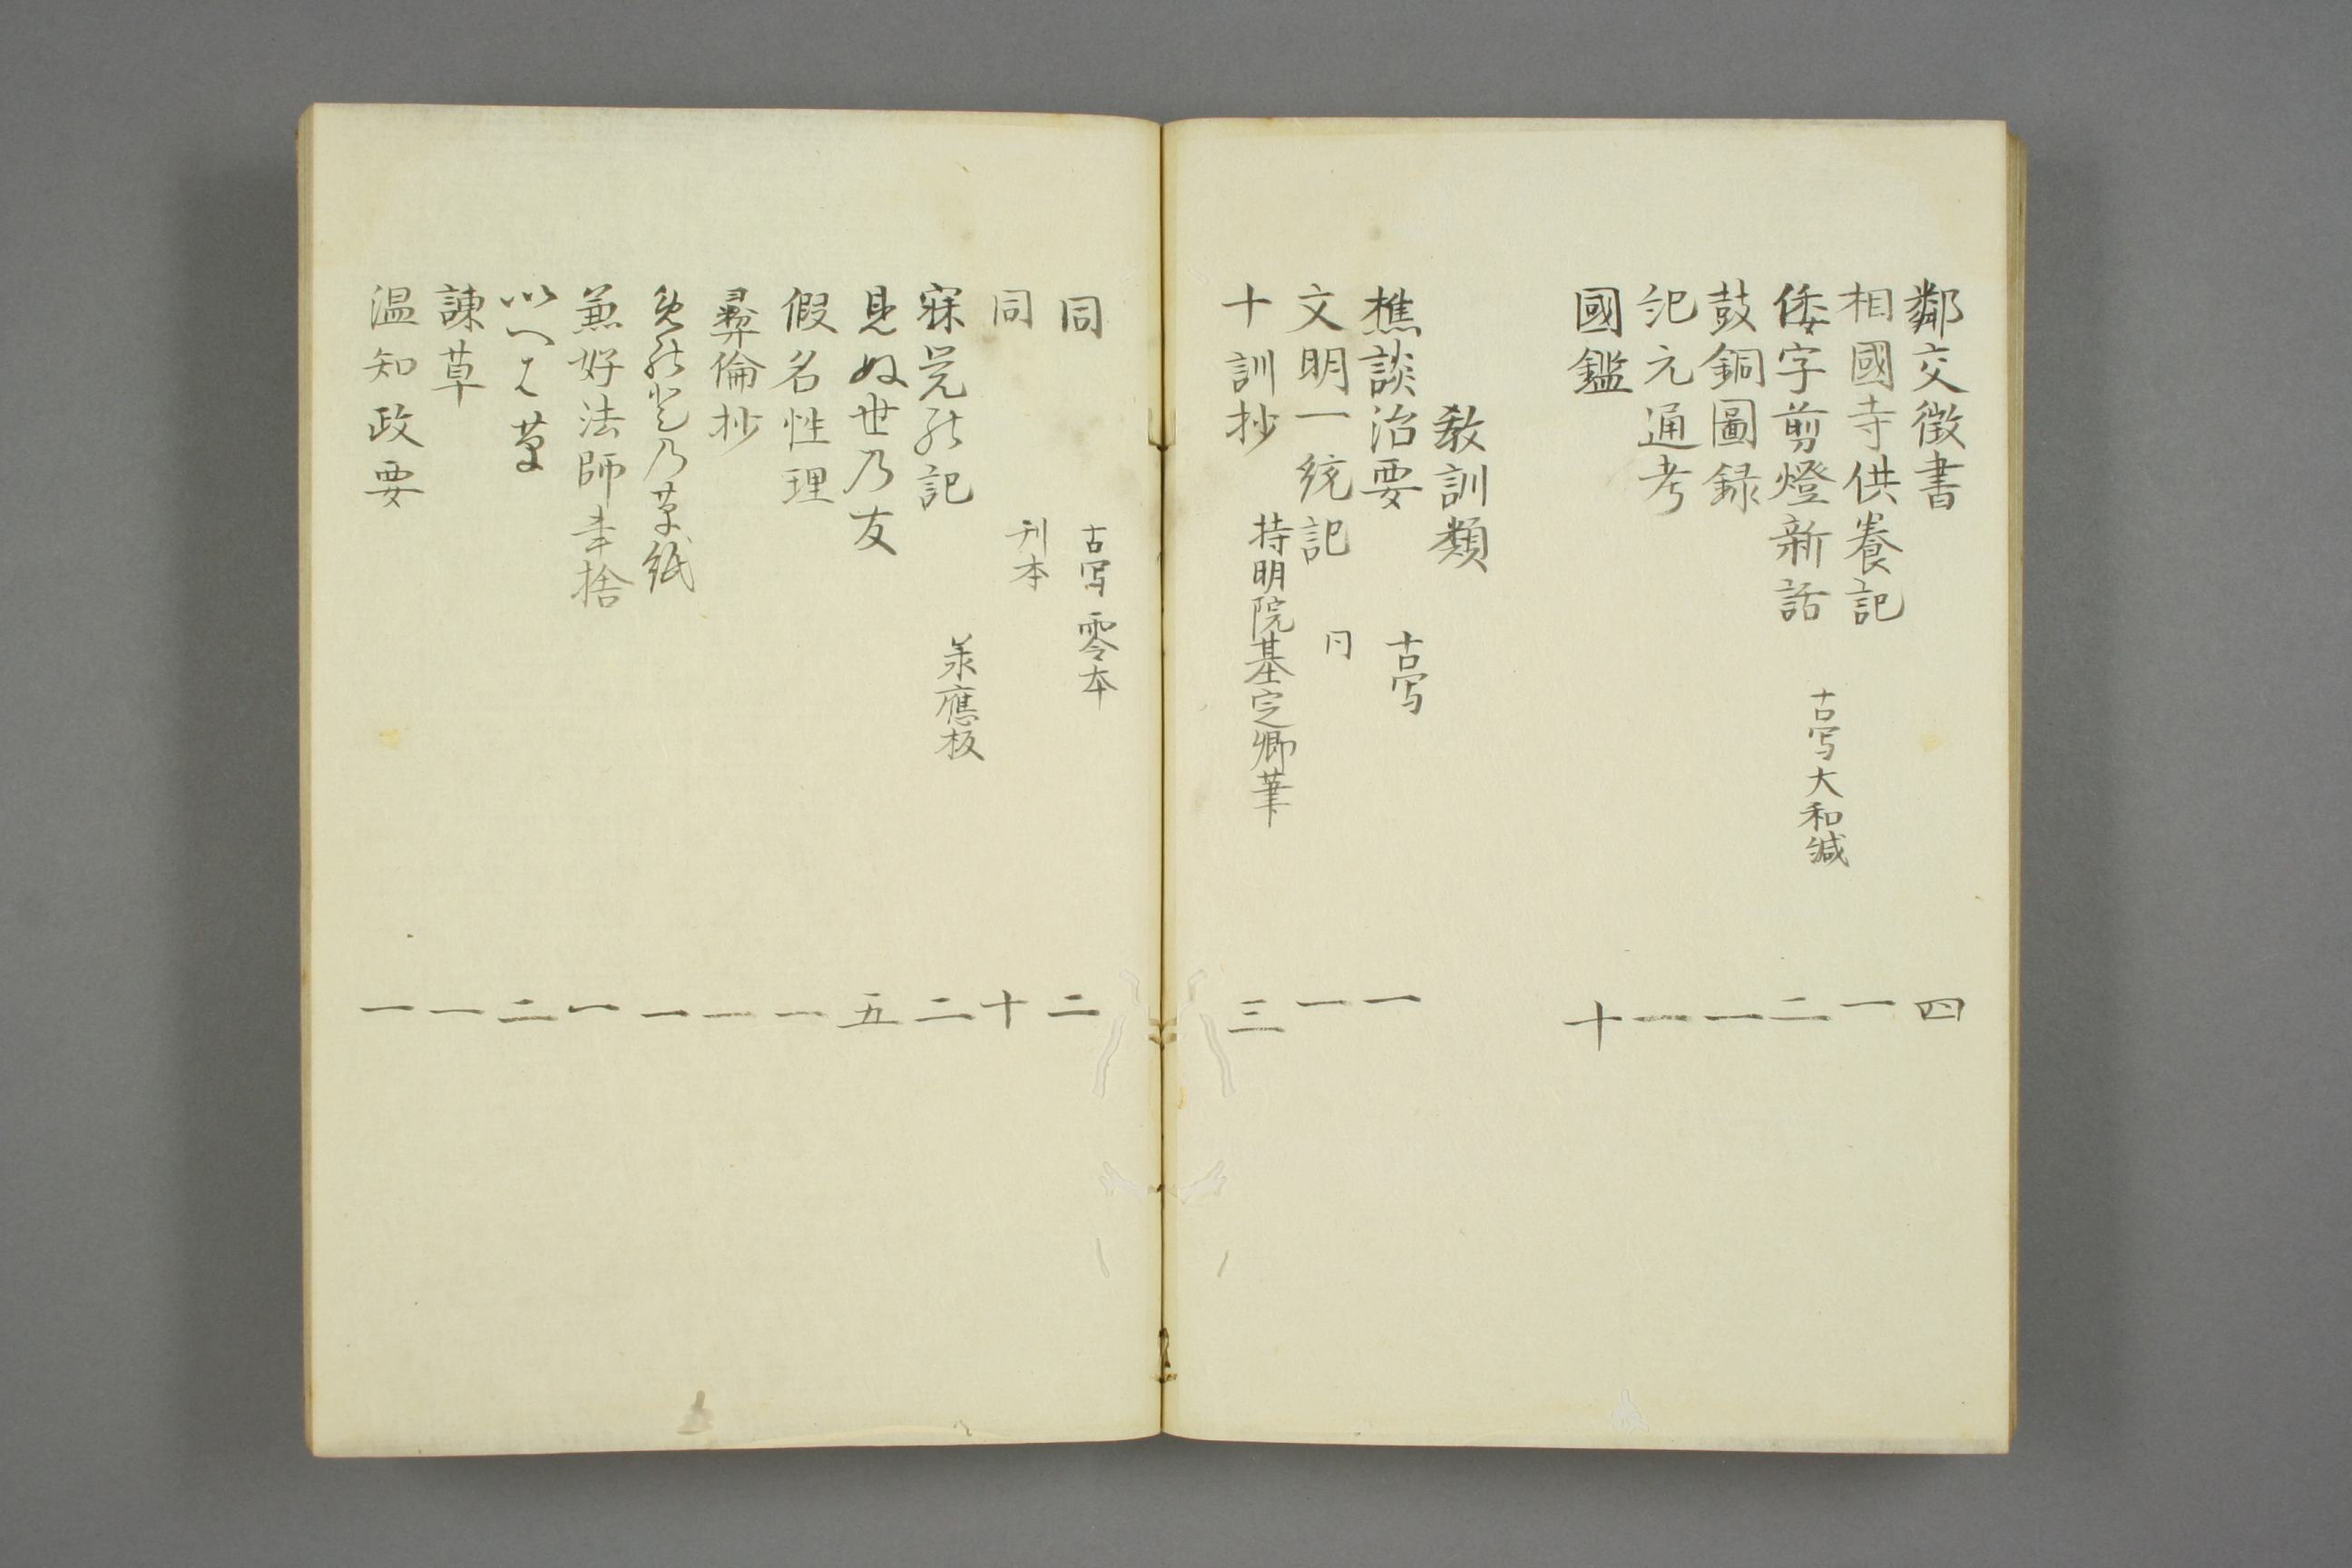 鄰交徴書 四
相國寺供養記 一
倭字剪燈新話 古写大和緘 二
鼓銅圖録 一
紀元通考 一
國鑑 十
教訓類
樵談治要 古写 一
文明一統記 同 一
十訓抄 持明院基定卿筆 三
同 古写零本 二
同 刊本 十
寐覚能記 承應板 二
見ぬ世乃友 五
假名性理 一
彛倫抄 一
乃草紙 一
兼好法師 一
いへは草 二
諫草 一
温知政要 一